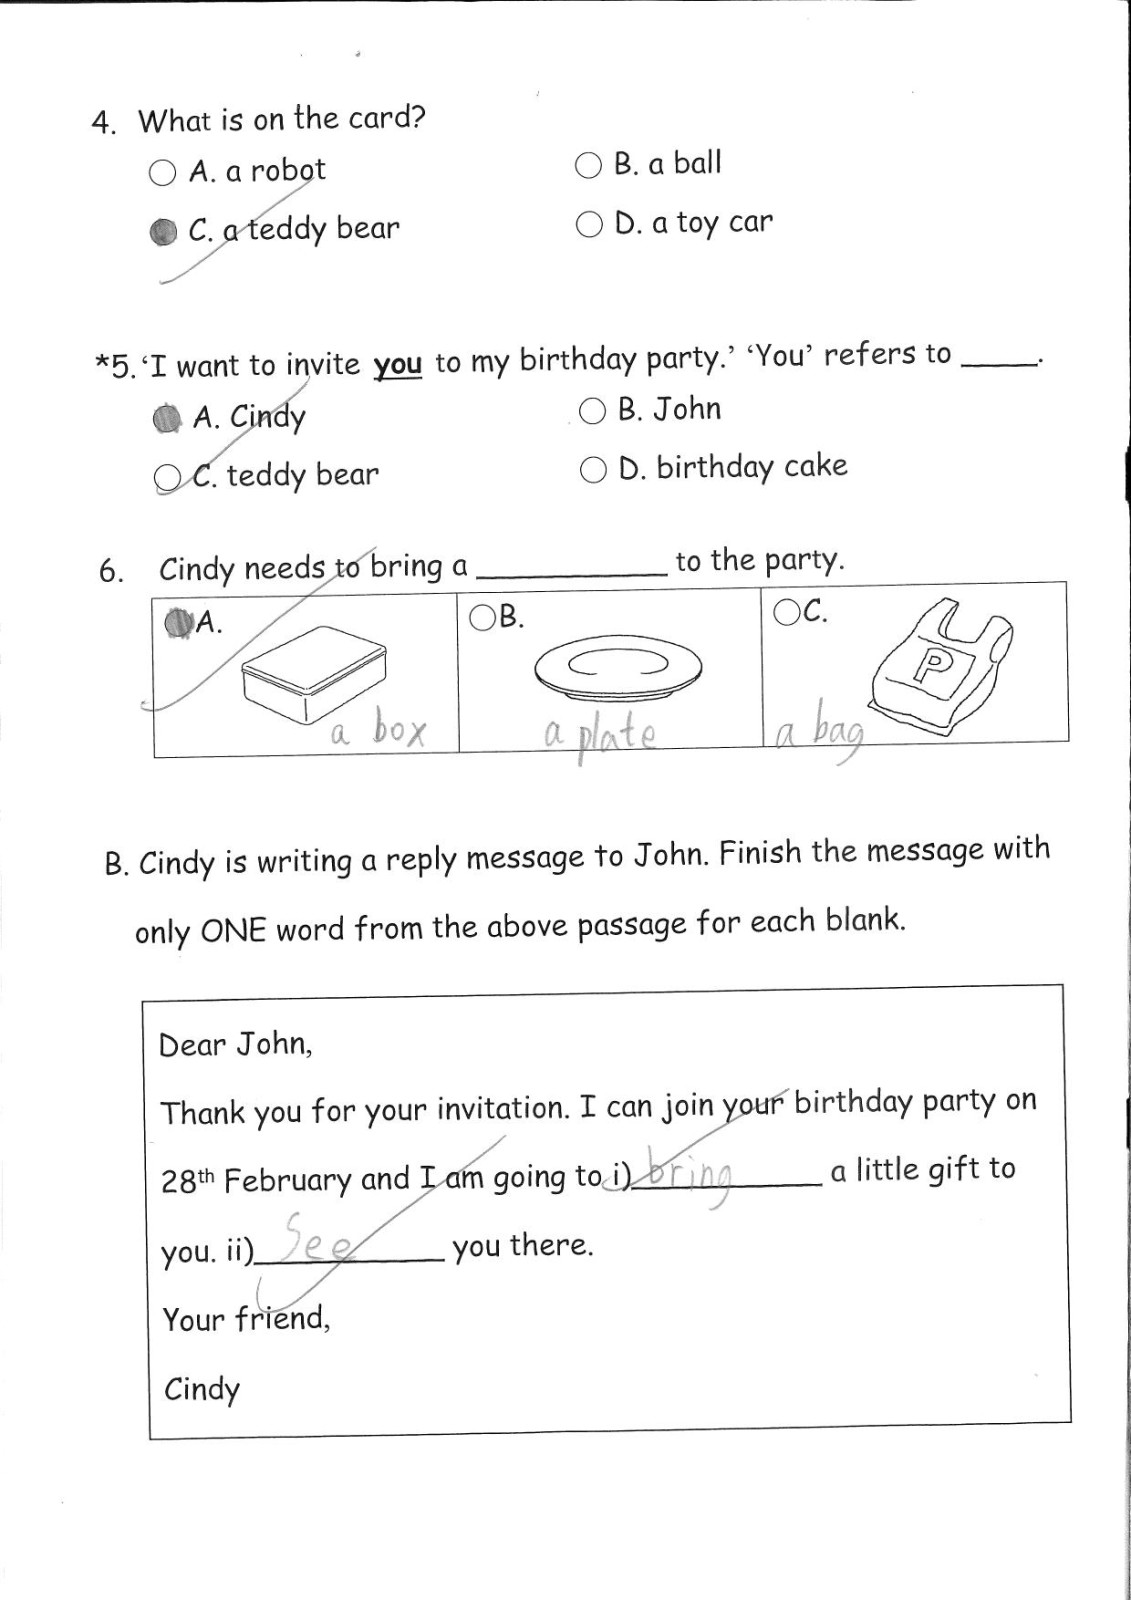 4. What is on the card?
A. a robot B. a ball
C. a teddy bear D. a toy car
*5. ‘I want to invite you to my birthday party.’ ‘You’ refers to _____.
A. Cindy B. John
C. teddy bear D. birthday cake
6. Cindy needs to bring a ____________ to the party.
A. B. C.
P
a box a plate a bag
B. Cindy is writing a reply message to John. Finish the message with
only ONE word from the above passage for each blank.
Dear John,
Thank you for your invitation. I can join your birthday party on
28th February and I am going to i) bring a little gift to
you. ii) See you there.
Your friend,
Cindy